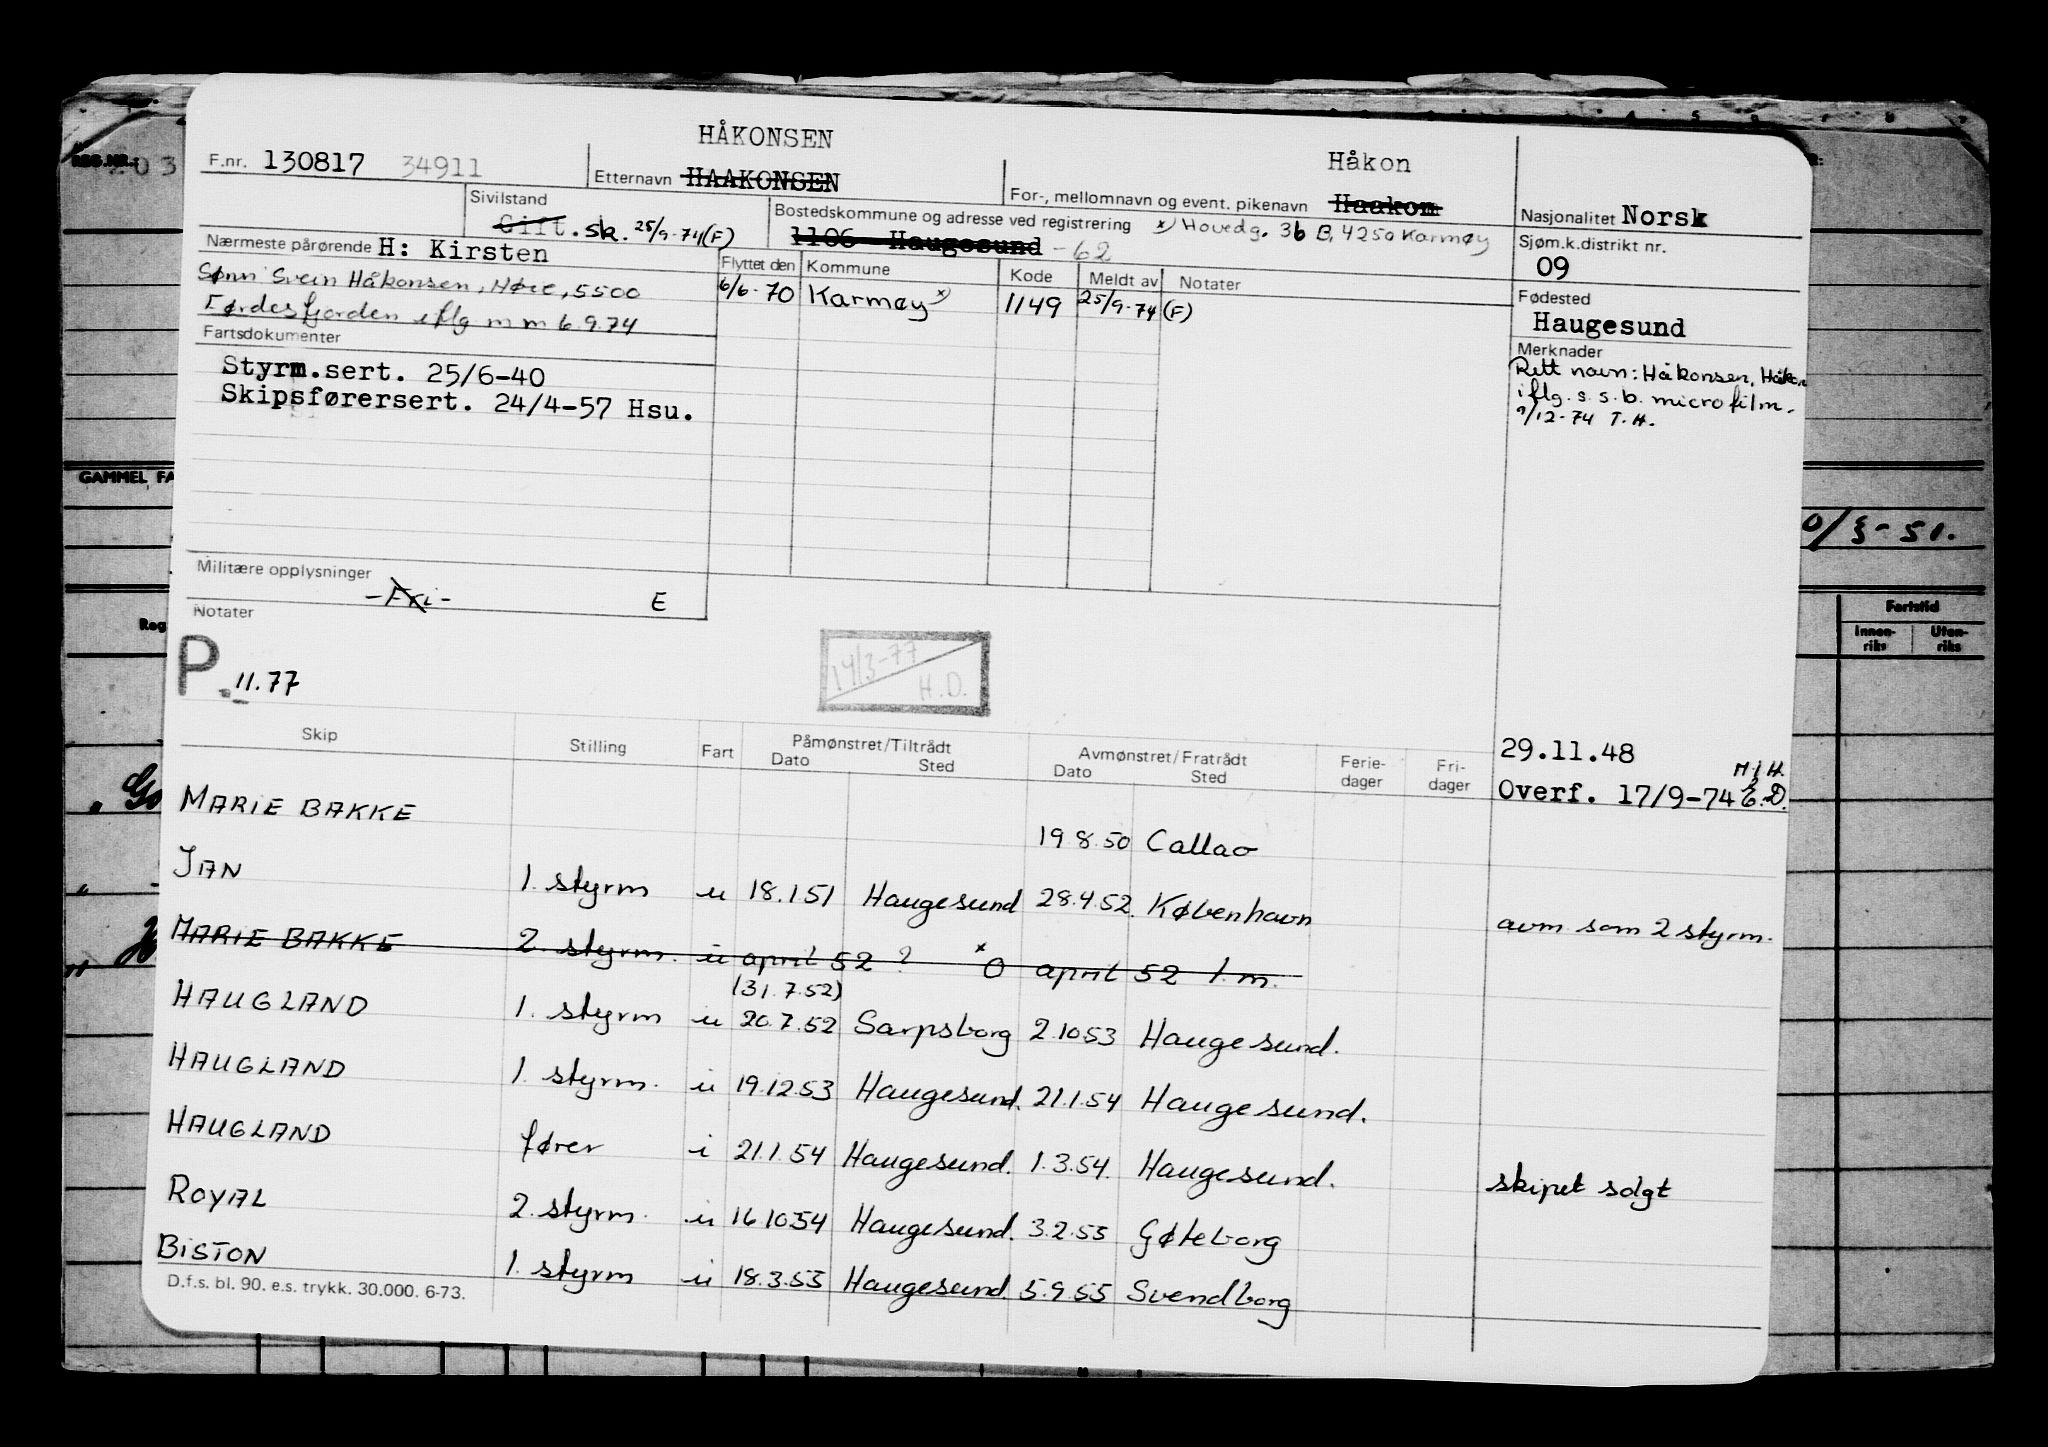 HÅKONSEN
Håkon
F.nr. 130817 34911
Etternavn HAAKONSEN
For-, mellomnavn og event. pikenavn Haakon
Nasjonalitet Norsk
Sivilstand
Gift. sk. 25/9-74(F)
Bostedskommune og adresse ved registrering x) Hovedg. 36 B, 4250 Karmøy
1106 Haugesund -62
Sjøm.k.distrikt nr.
09
Nærmeste pårørende H: Kirsten
Sønn Svein Håkonsen, 5500
Førdesfjorden iflg m m 6.9.74
Flyttet den Kommune Kode Meldt av Notater
6/6-70 Karmøy x) 1149 25/9-74 (F)
Fødested
Haugesund
Fartsdokumenter
Styrm.sert. 25/6-40
Skipsførersert. 24/4-57 Hsu.
Merknader
Rett navn: Håkonsen, Håkon
iflg. s.s.b. microfilm.
9/12-74 T.H.
GAMMEL FA
0/8-51.
Militære opplysninger
-Fri- E
Notater
P. 11.77
14/3-77
H.D.
Fartstid
Innen-riks Uten-riks
Skip Stilling Fart Påmønstret/Tiltrådt Dato Sted Avmønstret/Fratrådt Dato Sted Ferie-dager Fri-dager
29.11.48
Overf. 17/9-74 E.D.
MARIE BAKKE 19.8.50 Callao
JAN 1. styrm u 18.1.51 Haugesund 28.4.52. København avm som 2 styrm.
MARIE BAKKE 2. styrm. u april 52 ? x O april 52 1 m.
(31.7.52)
HAUGLAND 1. styrm u 20.7.52 Sarpsborg 2.10.53 Haugesund.
HAUGLAND 1. styrm. u 19.12.53 Haugesund. 21.1.54 Haugesund.
HAUGLAND fører i 21.1.54 Haugesund. 1.3.54. Haugesund. skipet solgt
ROYAL 2. styrm. u 16.10.54 Haugesund. 3.2.55 Gøteborg
BISTON 1. styrm u 18.3.55 Haugesund. 5.9.55 Svendborg
D.f.s. bl. 90. e.s. trykk. 30.000. 6-73.